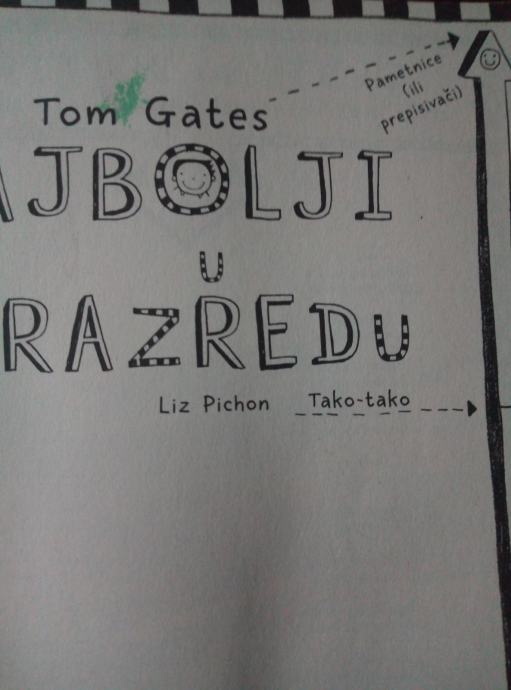 Tom Gates
Pametnice
(ili
prepisivači)
AJBOLJI
u
RAZREDU
Liz Pichon
Tako-tako